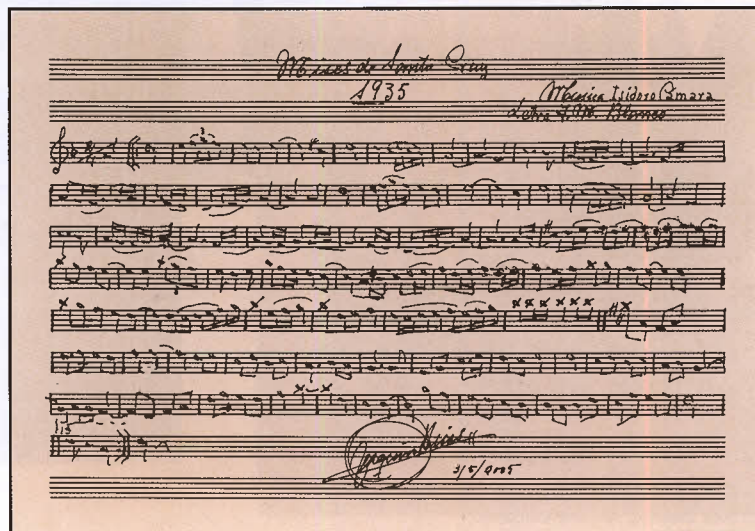 de Santa Cruz
1935
Musica Isidoro Cámara
Letra J. M. Blanco
3
113
3/5/2005